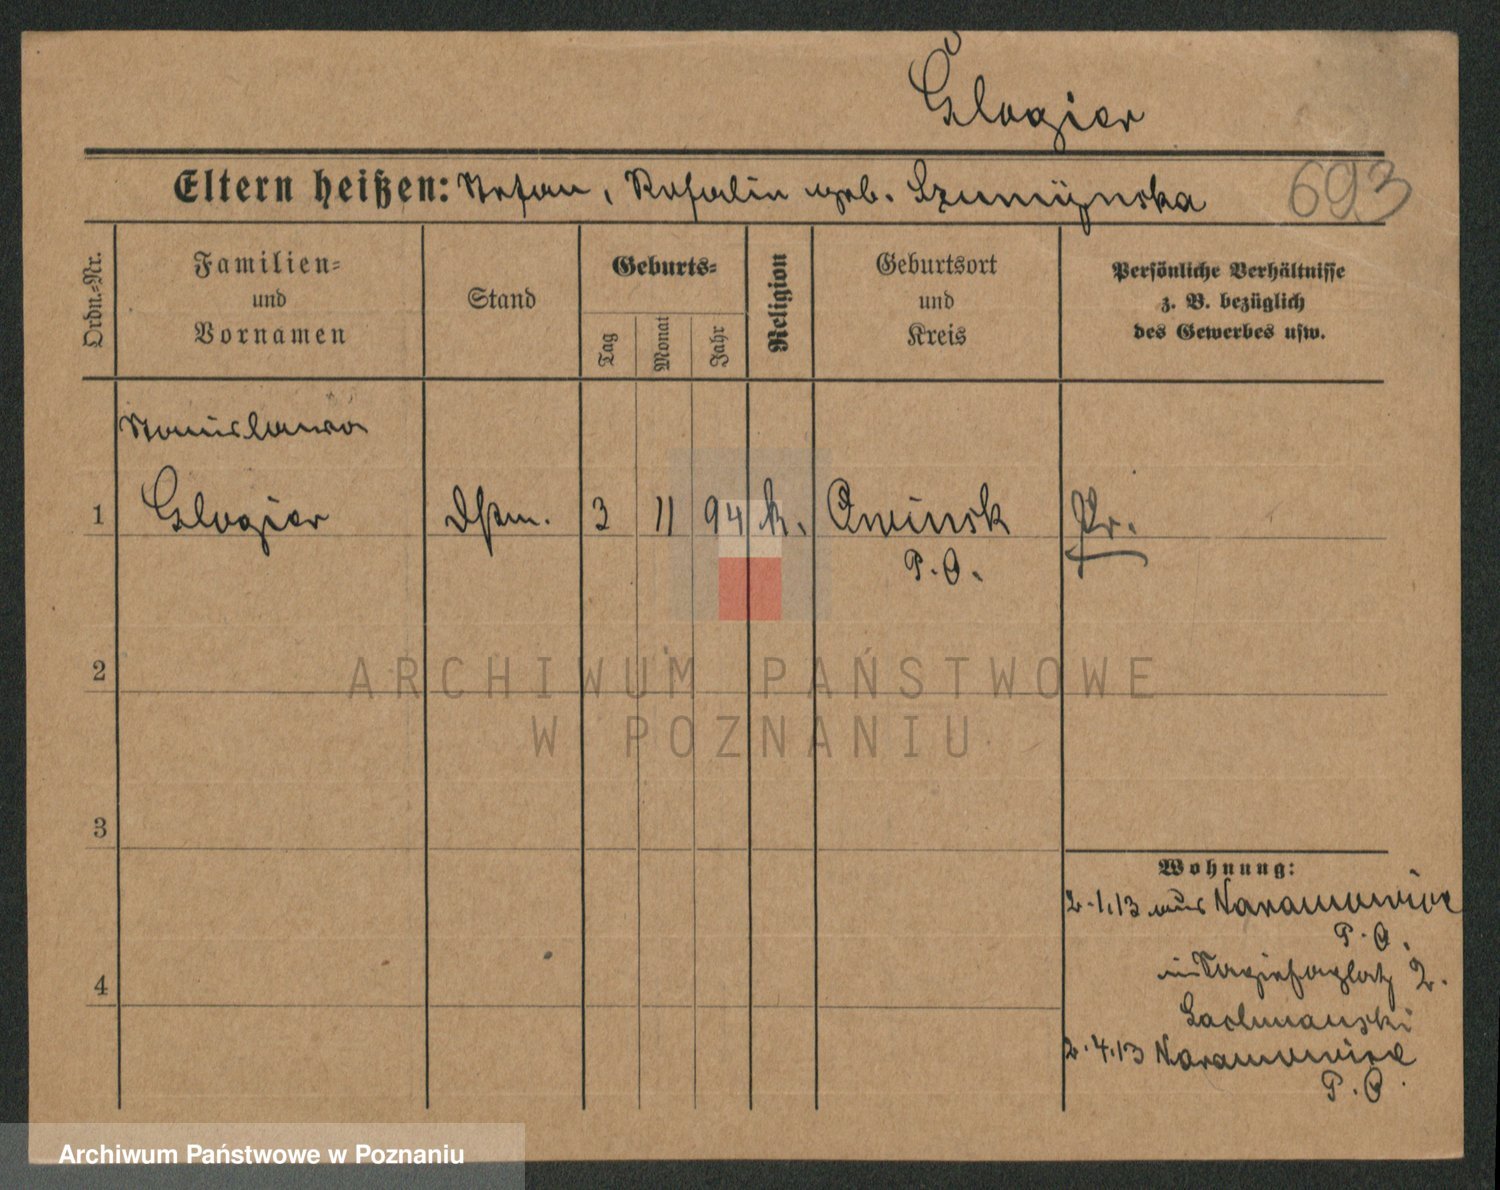 Glogier
Eltern heißen: Stefan, Rosalie geb. Szumińska
693
Ordn.-Nr.
Familien-
und
Vornamen
Stand
Geburts-
Tag
Monat
Jahr
Religion
Geburtsort
und
Kreis
Persönliche Verhältnisse
z. B. bezüglich
des Gewerbes usw.
Stanislawa
1 Glogier Dstm. 3 11 94 k. Owinsk Pr.
P. O.
2
3
4
Wohnung:
2.1.13 aus Naramowice
P. O.
in Sapiehaplatz 2.
2.4.13 Naramowice
P. O.
ARCHIWUM PAŃSTWOWE
W POZNANIU
Archiwum Państwowe w Poznaniu